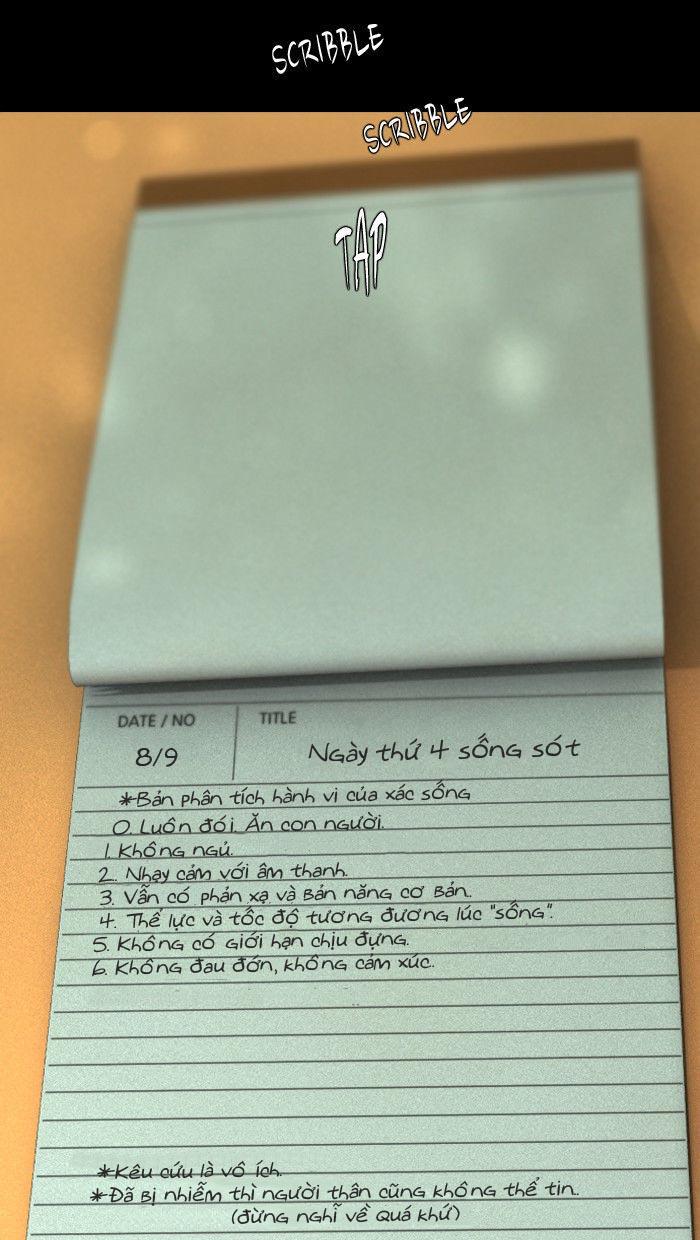 SCRIBBLE
SCRIBBLE
TAP
DATE / NO
TITLE
8/9
Ngày thứ 4 sống sót
*Bản phân tích hành vi của xác sống
0. Luôn đói. Ăn con người.
1. Không ngủ.
2. Nhạy cảm với âm thanh.
3. Vẫn có phản xạ và bản năng cơ bản.
4. Thể lực và tốc độ tương đương lúc "sống".
5. Không có giới hạn chịu đựng.
6. Không đau đớn, không cảm xúc.
*Kêu cứu là vô ích.
*Đã bị nhiễm thì người thân cũng không thể tin.
(đừng nghĩ về quá khứ)